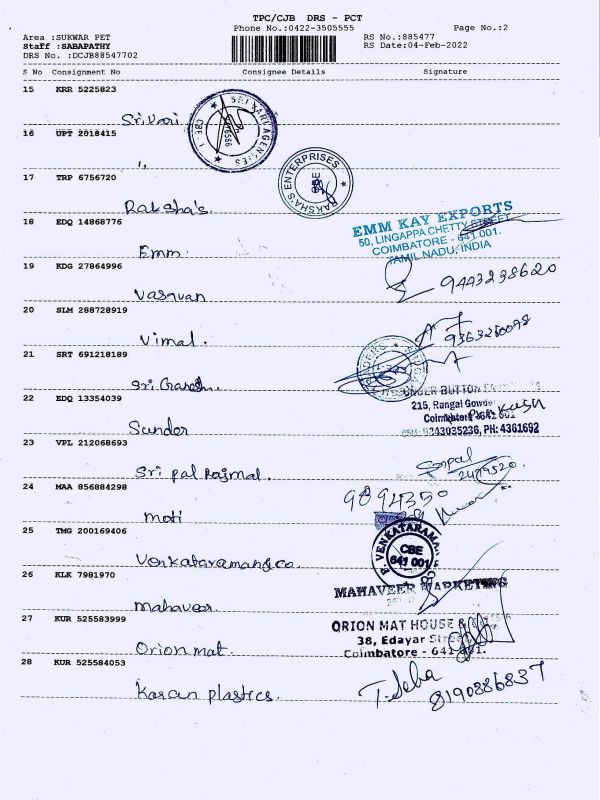 TPC/CJB DRS - PCT
Phone No.:0422-3505555 Page No.:2
Area :SUKWAR PET RS No.:885477
Staff :SABAPATHY RS Date:04-Feb-2022
DRS No. :DCJB88547702
S No Consignment No Consignee Details Signature
15 KRR 5225823
Sri Vari
SRI VARI AGENCIES
CBE
16 UPT 2018415
"
17 TRP 6756720
Raksha's.
RAKSHA'S ENTERPRISES
CBE
18 EDQ 14868776
Emm.
EMM KAY EXPORTS
50, LINGAPPA CHETTY STREET
COIMBATORE - 641 001.
TAMIL NADU, INDIA
19 KDG 27864996
Vasavan
9443238620
20 SLM 288728919
Vimal.
21 SRT 691218189
Sri Ganesh.
22 EDQ 13354039
Sunder
BUTTON
215, Rangai Gowder
Coimbatore 641 001
9343035236, PH: 4361692
23 VPL 212068693
Sri pal Rajmal.
24 MAA 856884298
moti
25 TMG 200169406
Venkataraman&co.
P. VENKATARAMA
CBE
641 001
26 KLK 7981970
Mahaveer
MAHAVEER MARKETING
27 KUR 525583999
Orion mat.
ORION MAT HOUSE &
38, Edayar Street
Coimbatore - 641 001.
28 KUR 525584053
Karan plastics.
T. Seba
8190886837